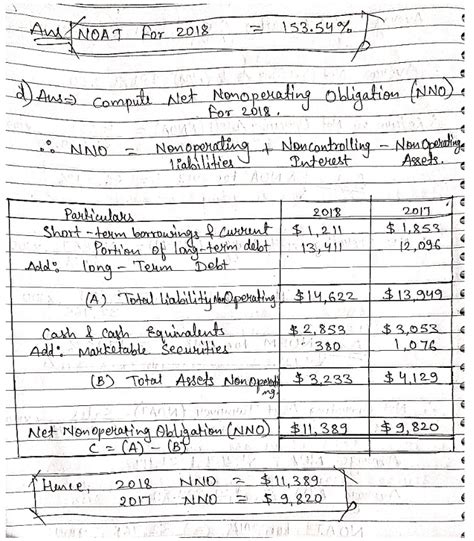 Ans NOAT For 2018 = 153.54%
d) Ans⇒ Compute Net Nonoperating Obligation (NNO)
for 2018.
∴ NNO = Nonoperating liabilities + Noncontrolling Interest - Non Operating Assets.
Particulars 2018 2017
Short-term borrowings & Current $1,211 $1,853
Portion of long-term debt 13,411 12,096
Add: long-Term Debt
(A) Total liability NonOperating $14,622 $13,949
Cash & Cash Equivalents $2,853 $3,053
Add: Marketable Securities 380 1,076
(B) Total Assets Non Operating. $3,233 $4,129
Net Nonoperating Obligation (NNO) $11,389 $9,820
C = (A) - (B)
Hence, 2018 NNO = $11,389
2017 NNO = $9,820